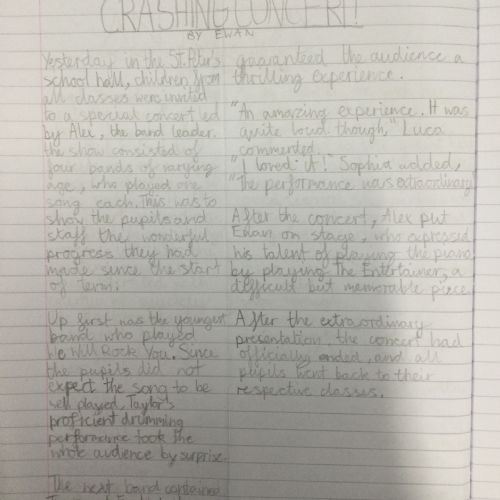 CRASHING CONCERT!
BY EWAN
Yesterday in the St. Peter's
school hall, children from
all classes were invited
to a special concert led
by Alex, the band leader.
the show consisted of
four bands of varying
age, who played one
song each. This was to
show the pupils and
staff the wonderful
progress they had
made since the start
of term.
Up first was the youngest
band who played
We Will Rock You. Since
the pupils did not
expect the song to be
well played, Taylor's
proficient drumming
performance took the
whole audience by surprise.
The next band contained
guaranteed the audience a
thrilling experience.
"An amazing experience. It was
quite loud though," Luca
commented.
"I loved it!" Sophia added,
"The performance was extraordinary
After the concert, Alex put
Ewan on stage, who expressed
his talent of playing the piano
by playing The Entertainer, a
difficult but memorable piece.
After the extraordinary
presentation, the concert had
officially ended, and all
pupils went back to their
respective classes.